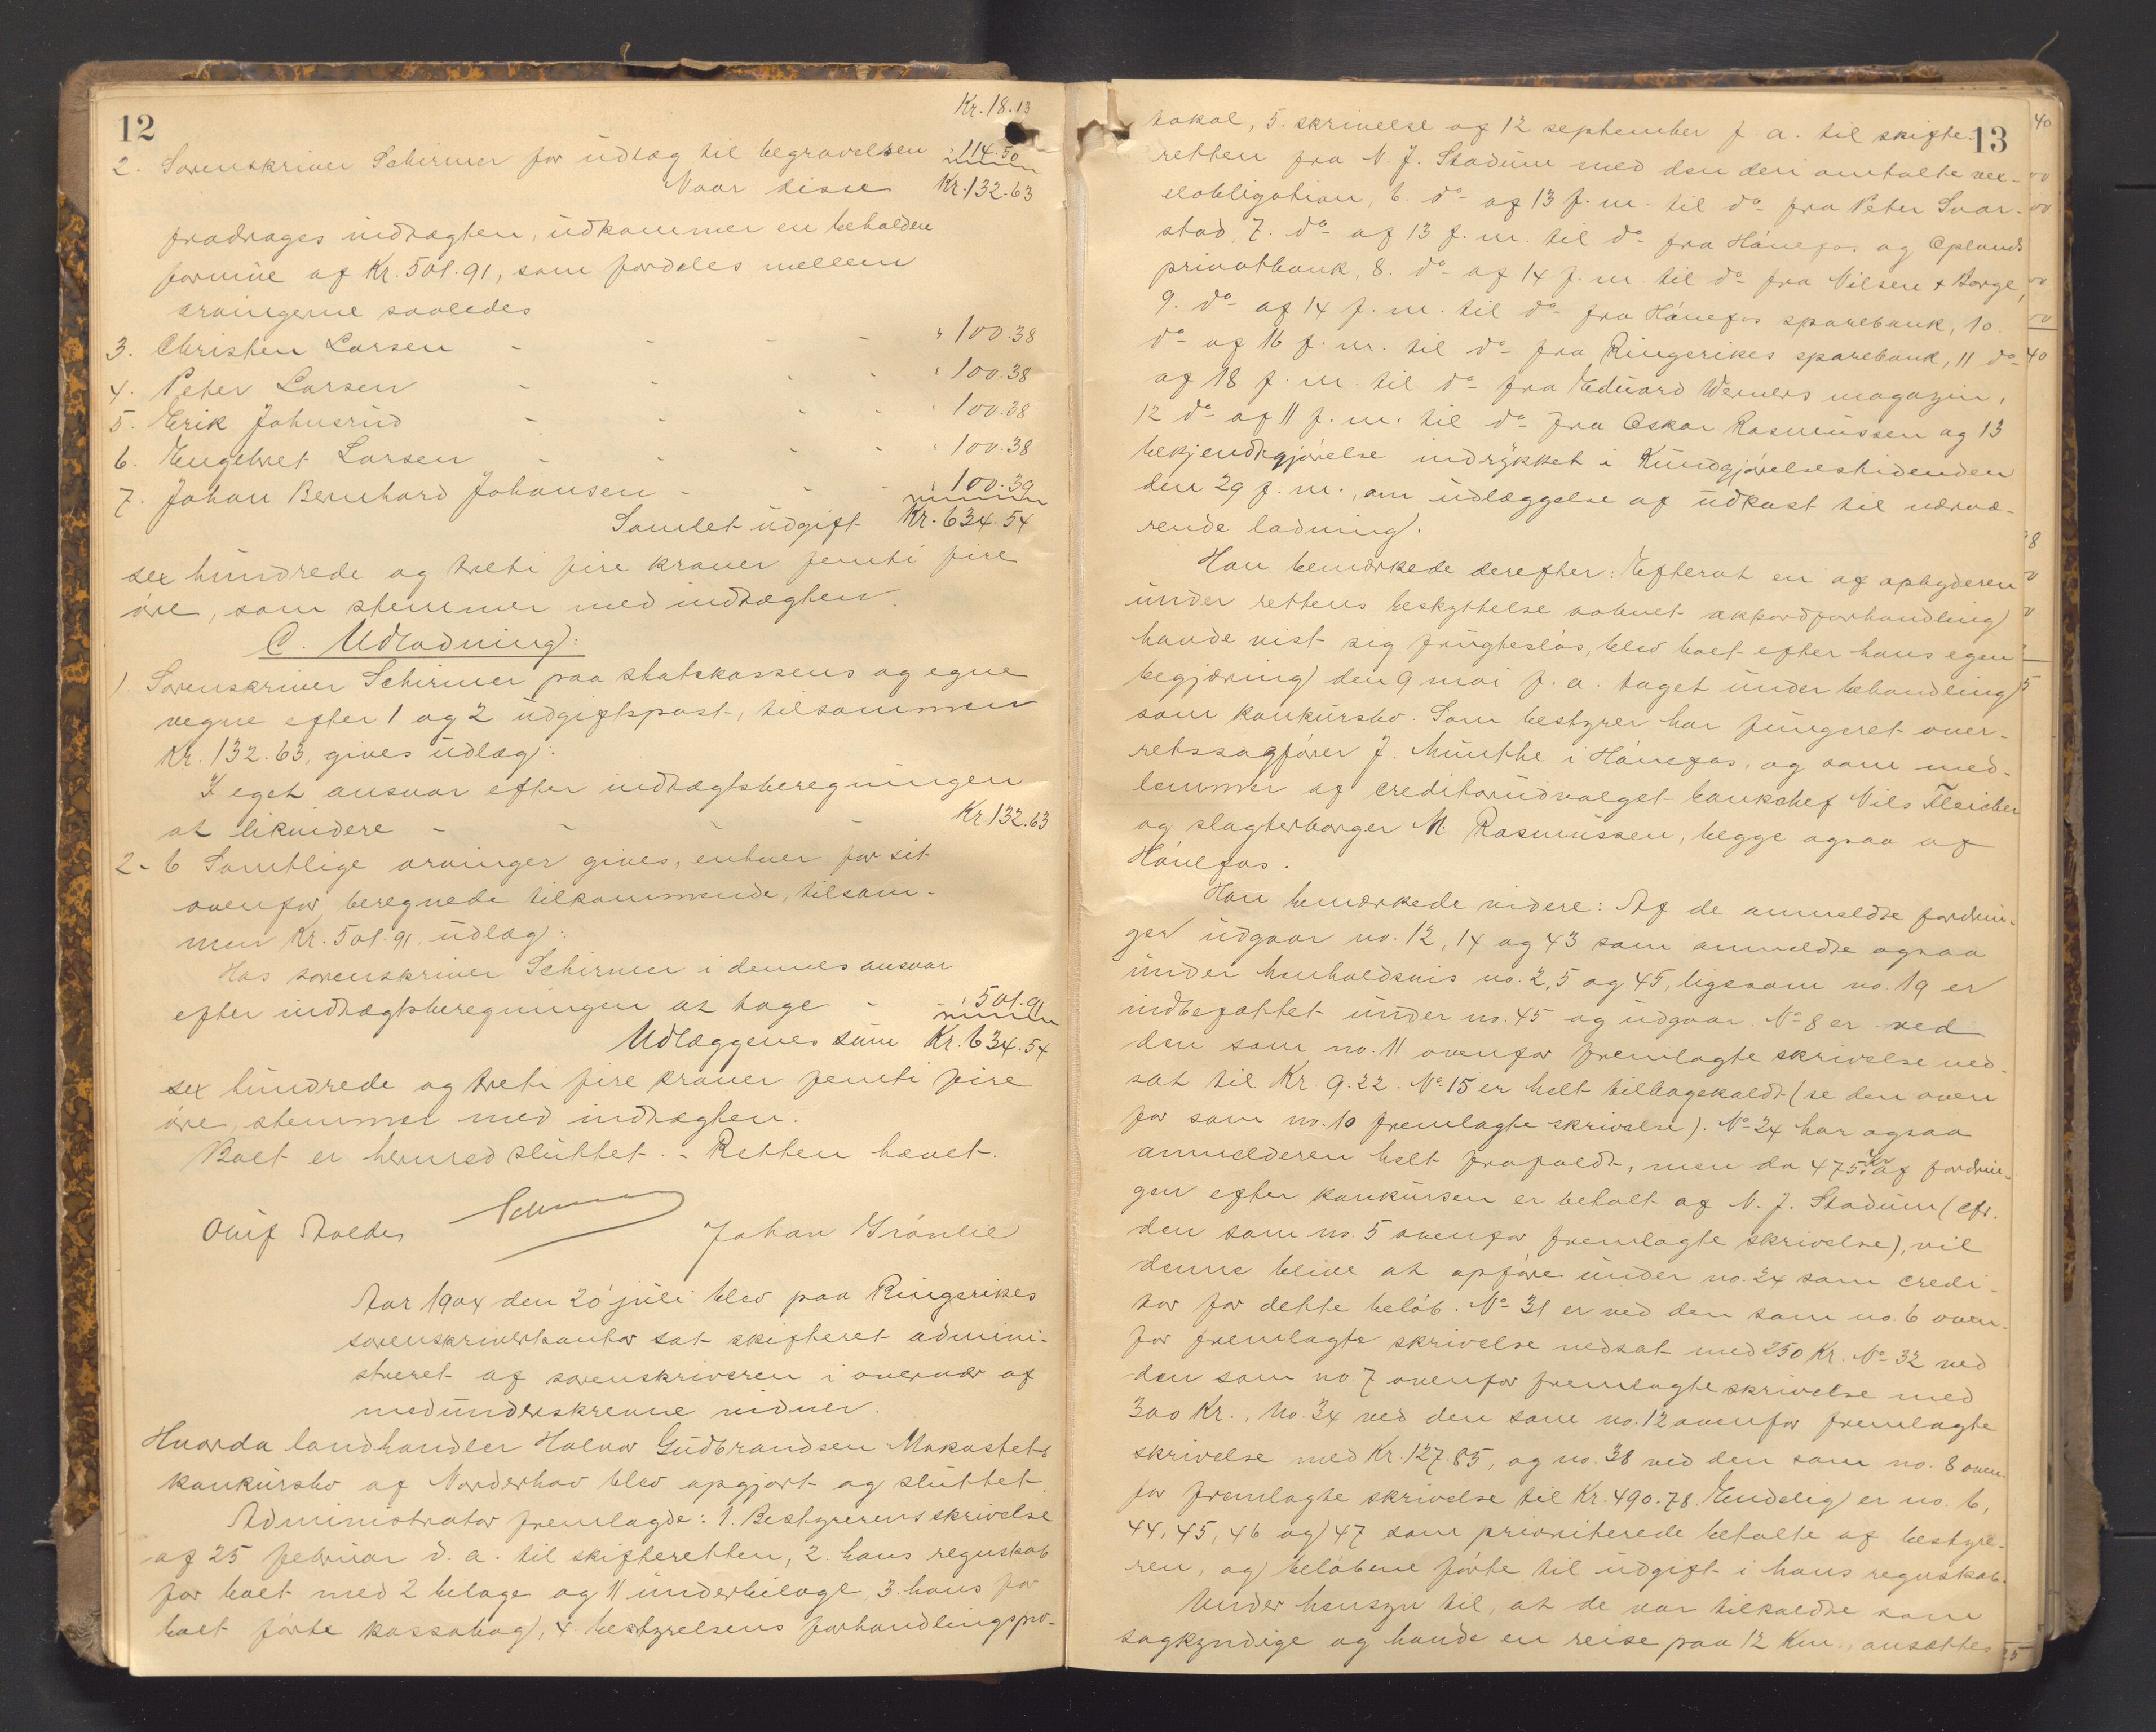 12
Kr. 18.13
2. Sorenskriver Schirmer for udlæg til begravelsen " 114.50
Naar disse Kr. 132.63
fradrages indtægten, udkommer en beholden
formue af Kr. 501.91, som fordeles mellem
arvingerne saaledes
3. Christen Larsen - - - - " 100.38
4. Peter Larsen - - - - " 100.38
5. Erik Johnsrud - - - - " 100.38
6. Engebret Larsen - - - - " 100.38
7. Johan Bernhard Johansen - - - " 100.39
Samlet udgift Kr. 634.54
sex hundrede og treti fire kroner femti fire
øre, som stemmer med indtægten.
C. Udlodning:
1) Sorenskriver Schirmer paa statskassens og egne
vegne efter 1 og 2 udgiftspost, tilsammen
Kr. 132.63, gives udlæg:
I eget ansvar efter indtægtsberegningen
at likvidere - - - - Kr. 132.63
2-6 Samtlige arvinger gives, enhver for sit
ovenfor beregnede tilkommende, tilsam-
men Kr. 501.91 udlæg:
Hos sorenskriver Schirmer i dennes ansvar
efter indtægtsberegningen at tage - - " 501.91
Udlæggenes sum Kr. 634.54
sex hundrede og treti fire kroner femti fire
øre, stemmer med indtægten.
Boet er hermed sluttet. - Retten hævet.
Schirmer
Johan Grønlie
Aar 1904 den 20 juli blev paa Ringerikes
sorenskriverkontor sat skifteret admini-
streret af sorenskriveren i overvær af
medunderskrevne vidner.
Hvorda landhandler Halvor Gudbrandsen Mokastets
konkursbo af Norderhov blev opgjort og sluttet.
Administrator fremlagde: 1. Bestyrerens skrivelse
af 25 februar d. a. til skifteretten, 2. hans regnskab
for boet med 2 bilage og 11 underbilage, 3. hans for
boet førte kassabog, 4. bestyrelsens forhandlingspro-
13
tokol, 5. skrivelse af 12 september f. a. til skifte-
retten fra N. J. Stadum med den deri omtalte vex-
elobligation, 6. do af 13 f. m. til do fra Peter Svar-
stad, 7. do af 13 f. m. til do fra Hønefos og Oplands
privatbank, 8. do af 14 f. m. til do fra Nilsen & Borge,
9. do af 14 f. m. til do fra Hønefos sparebank, 10.
do af 16 f. m. til do fra Ringerikes sparebank, 11 do
af 18 f. m. til do fra Eduard Werners magazin,
12 do af 11 f. m. til do fra Oskar Rasmussen og 13
bekjendtgjørelse indrykket i Kundgjørelsestidenden
den 29 f. m., om udlæggelse af udkast til nærvæ-
rende lodning.
Han bemærkede derefter: Efterat en af opbyderen
under rettens beskyttelse aabnet akkordforhandling
havde vist sig frugtesløs, blev boet efter hans egen
begjæring den 9 mai f. a. taget under behandling
som konkursbo. Som bestyrer har fungeret over-
retssagfører J. Munthe i Hønefos, og som med-
lemmer af creditorudvalget bankchef Nils Fleicher
og slagterborger M. Rasmussen, begge ogsaa af
Hønefos.
Han bemærkede videre: Af de anmeldte fordrin-
ger udgaar no. 12, 14 og 43 som anmeldte ogsaa
under henholdsvis no. 2, 5 og 45, ligesom no. 19 er
indbefattet under no. 45 og udgaar. No 8 er ved
den som no. 11 ovenfor fremlagte skrivelse ned-
sat til Kr. 9.22. No 15 er helt tilbagekaldt (se den oven
for som no. 10 fremlagte skrivelse). No 24 har ogsaa
anmelderen helt frafaldt, men da 475 Kr af fordrin-
gen efter konkursen er betalt af N. J. Stadum (cfr.
den som no. 5 ovenfor fremlagte skrivelse), vil
denne blive at opføre under no. 24 som credi-
tor for dette beløb. No 31 er ved den som no. 6 oven-
for fremlagte skrivelse nedsat med 250 Kr. No 32 ved
den som no. 7 ovenfor fremlagte skrivelse med
300 Kr., No. 34 ved den som no. 12 ovenfor fremlagte
skrivelse med Kr. 127.85, og no. 38 ved den som no. 8 oven-
for fremlagte skrivelse til Kr. 490.78. Endelig er no. 6,
44, 45, 46 og 47 som prioriterede betalte af bestyre-
ren, og beløbene førte til udgift i hans regnskab.
Under hensyn til, at de var tilkaldte som
sagkyndige og havde en reise paa 12 Km., ansættes